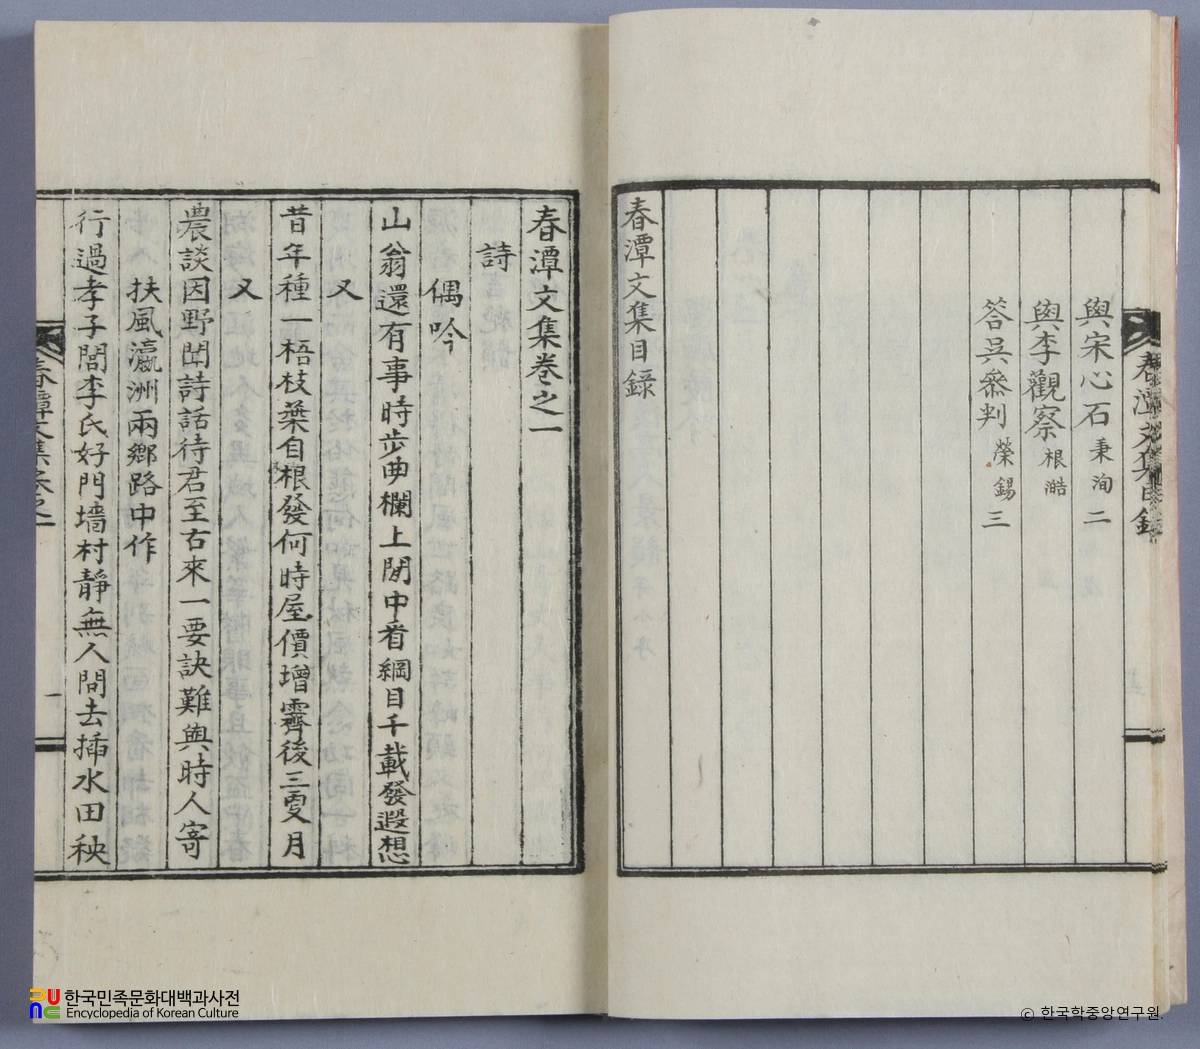 春潭文集目錄
與宋心石秉洵二
與李觀察根澔
答吳叅判榮錫三
春潭文集目錄
春潭文集卷之一
詩
偶吟
山翁還有事時步曲欄上閒中看綱目千載發遐想
又
昔年種一梧枝葉自根發何時屋價增霽後三更月
又
農談因野聞詩話待君至右來一要訣難與時人寄
扶風瀛洲兩鄉路中作
行過孝子閭李氏好門墻村靜無人問去揷水田秧
春潭文集卷之一
一
한국민족문화대백과사전
Encyclopedia of Korean Culture
© 한국학중앙연구원.